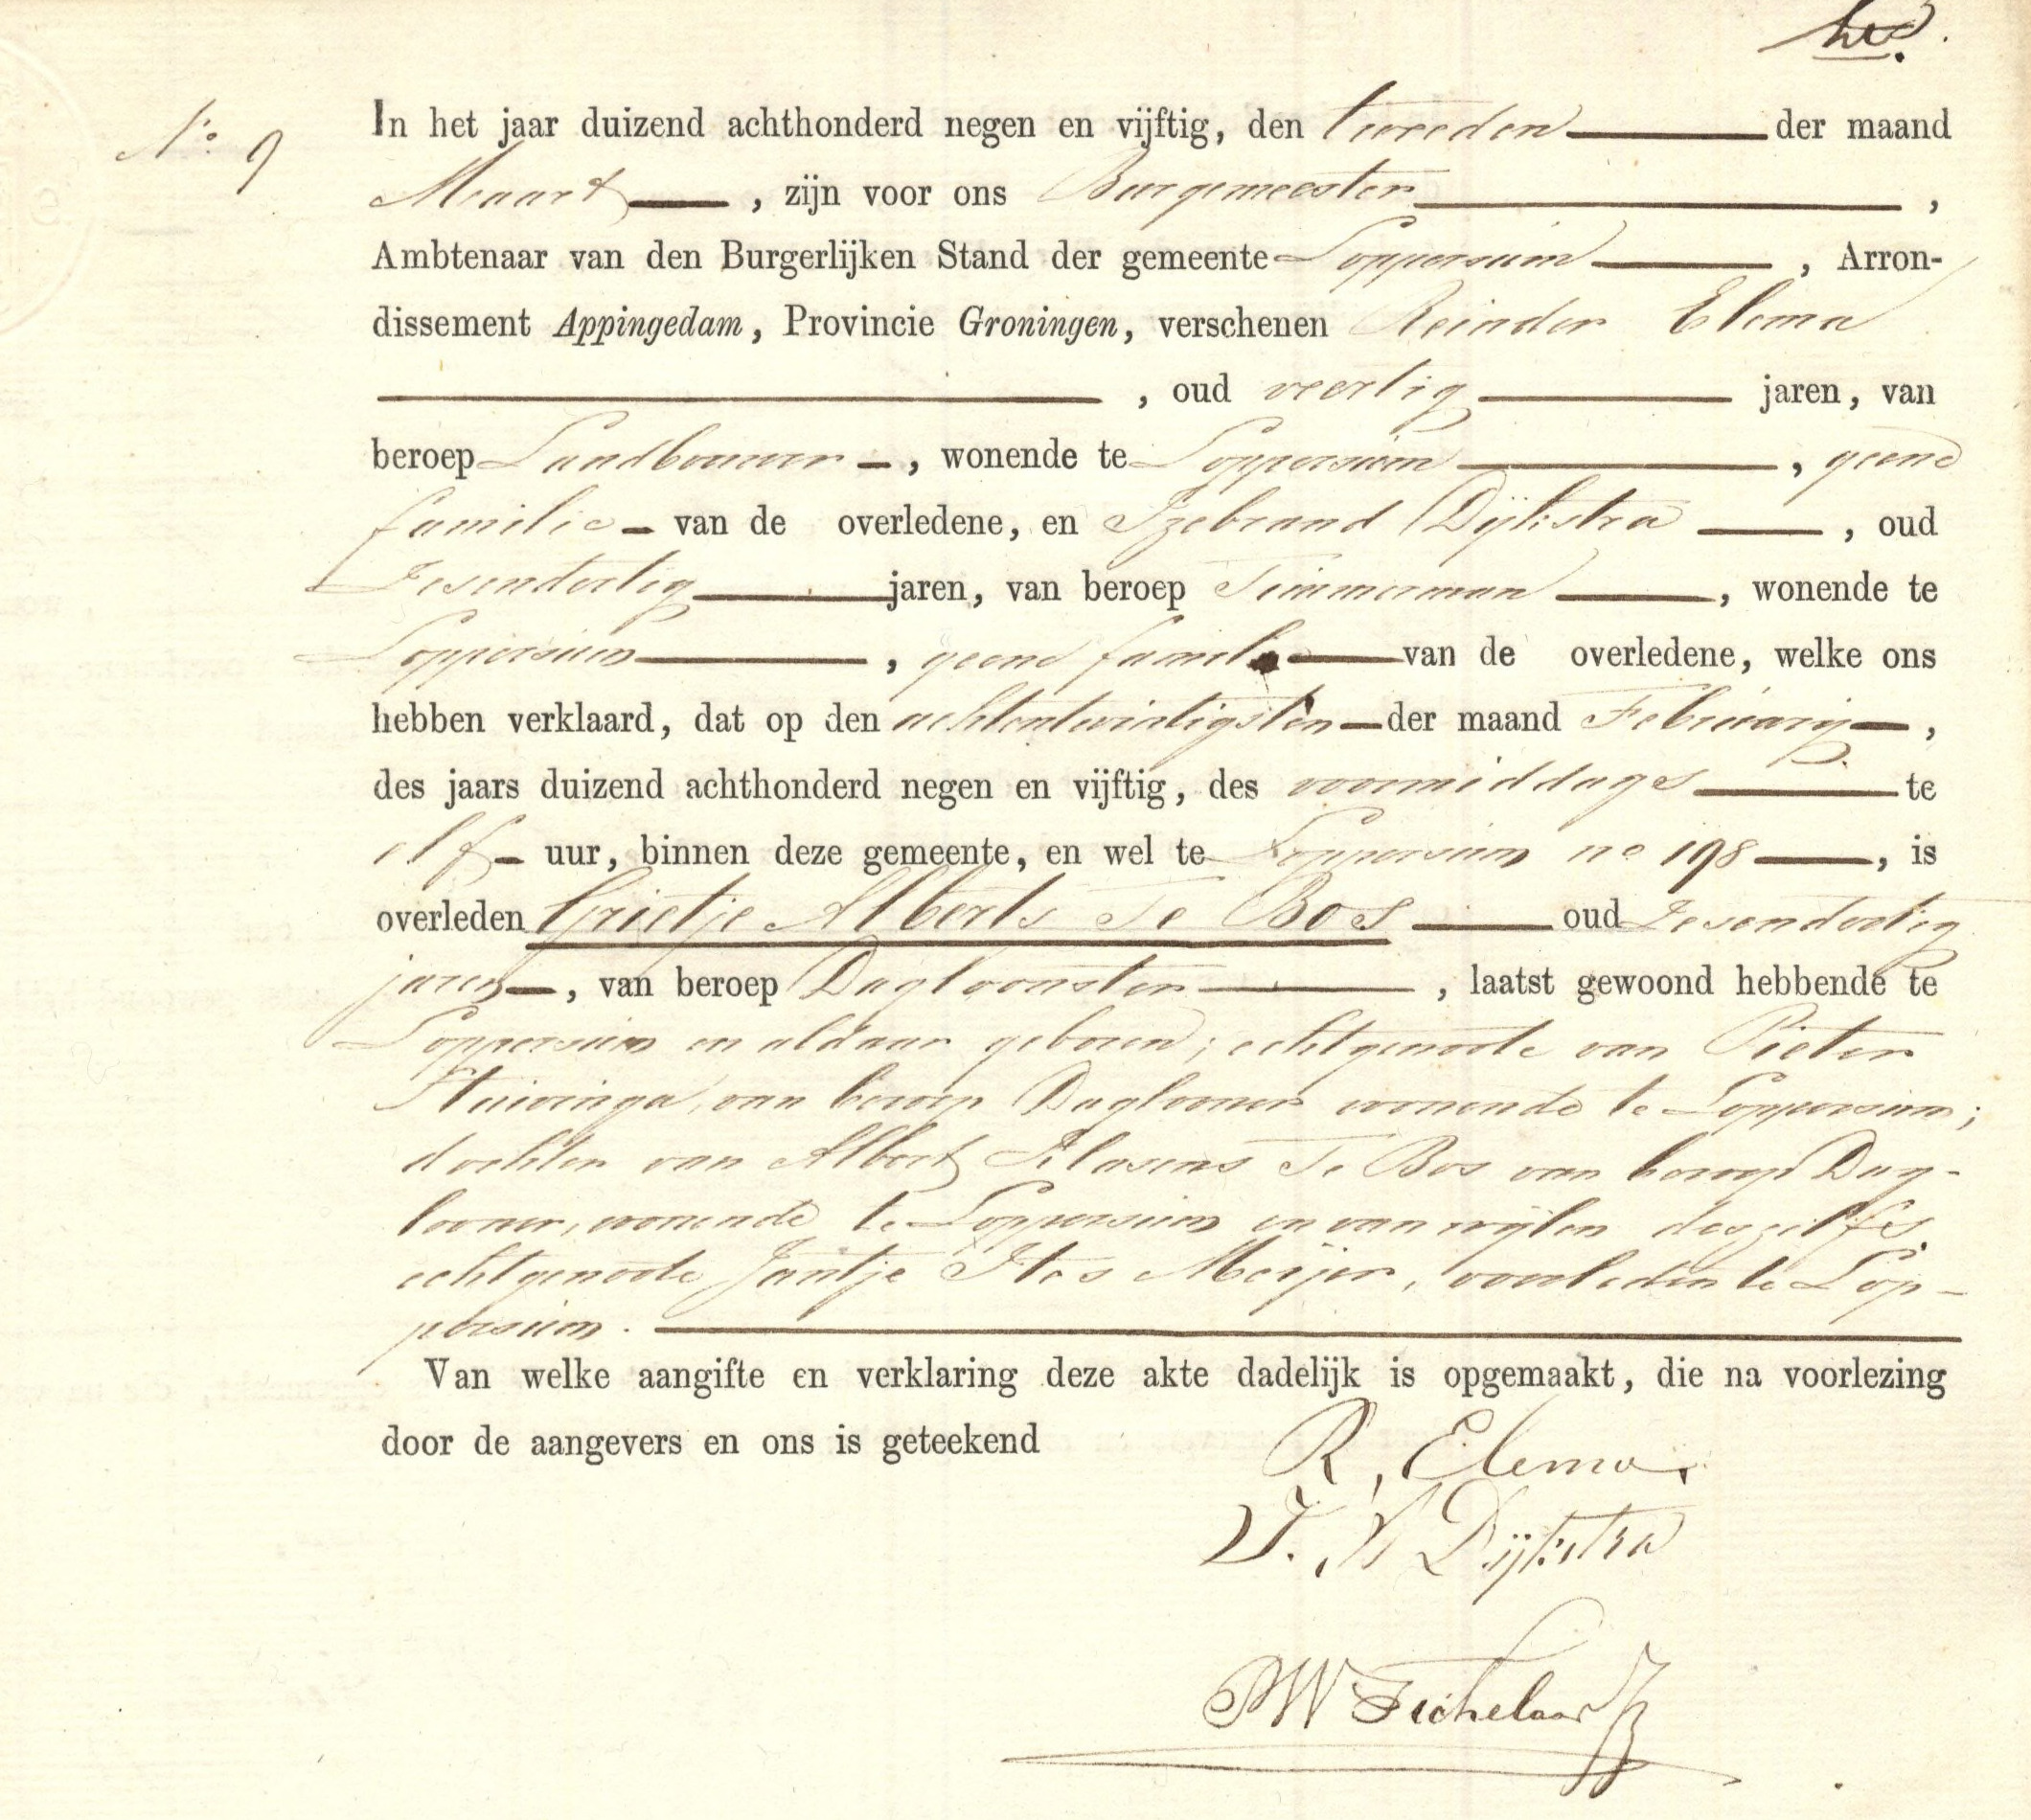 No 9
In het jaar duizend achthonderd negen en vijftig, den tweeden der maand
Maart, zijn voor ons Burgemeester,
Ambtenaar van den Burgerlijken Stand der gemeente Loppersum, Arron-
dissement Appingedam, Provincie Groningen, verschenen Reinder Elema
, oud veertig jaren, van
beroep Landbouwer, wonende te Loppersum, geene
familie van de overledene, en Izebrand Dijkstra, oud
Zesendertig jaren, van beroep Timmerman, wonende te
Loppersum, geene familie van de overledene, welke ons
hebben verklaard, dat op den achtentwintigsten der maand Februarij,
des jaars duizend achthonderd negen en vijftig, des voormiddags te
elf uur, binnen deze gemeente, en wel te Loppersum no 198, is
overleden Grietje Alberts Te Bos oud Zesendertig
jaren, van beroep Dagloonster, laatst gewoond hebbende te
Loppersum en aldaar geboren; echtgenoote van Pieter
Huivinga, van beroep Daglooner wonende te Loppersum;
dochter van Albert Klasens Te Bos van beroep Dag-
looner, wonende te Loppersum en van wijlen deszelfs
echtgenoote Jantje Ites Meijer, overleden te Lop-
persum.
Van welke aangifte en verklaring deze akte dadelijk is opgemaakt, die na voorlezing
door de aangevers en ons is geteekend
R, Elema
I. Dijkstra